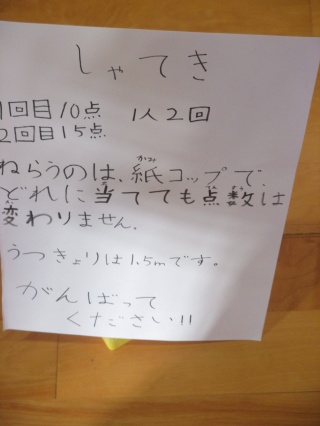 しゃてき
1回目10点 1人2回
2回目15点
ねらうのは、紙コップで、
どれに当てても点数は
変わりません。
うつきょりは1.5mです。
がんばって
ください!!